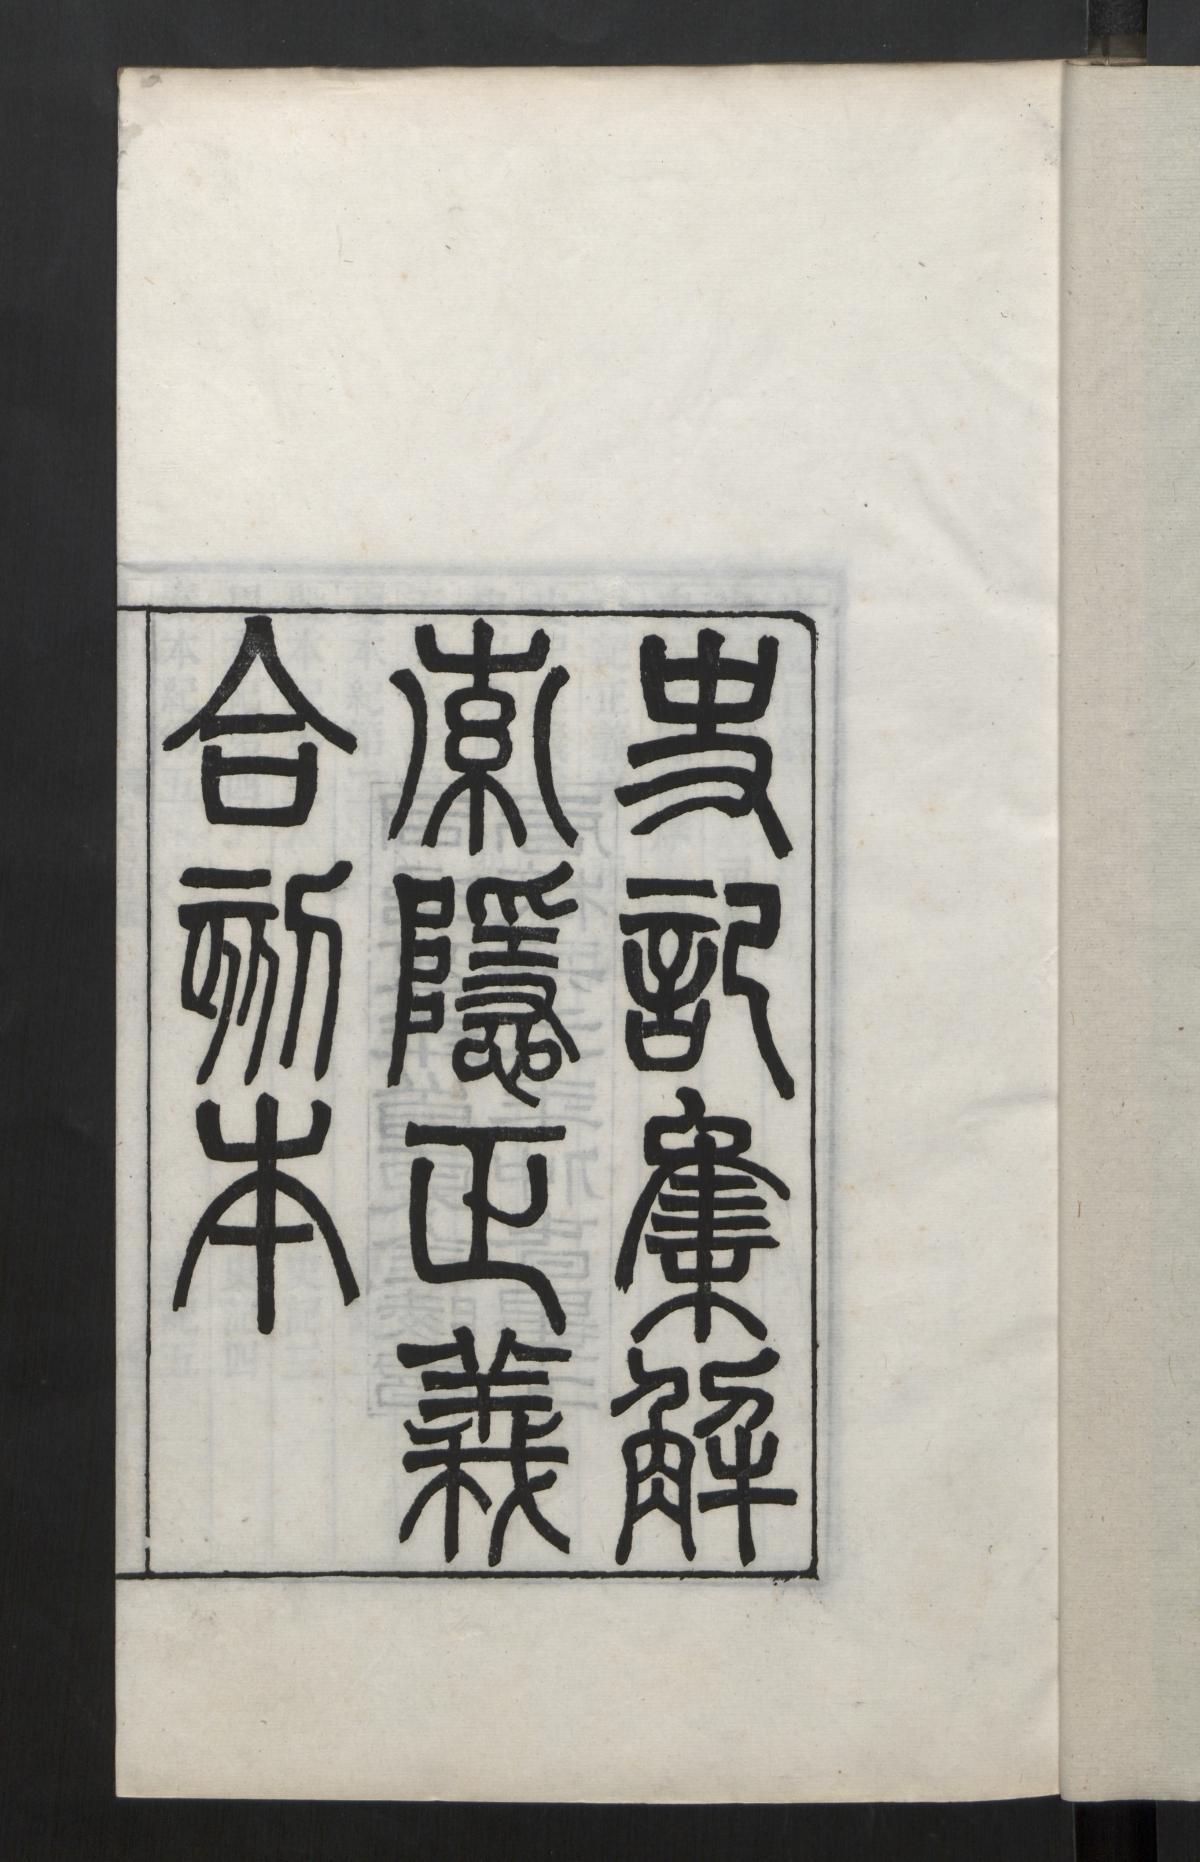 史記集解
索隱正義
合刻本